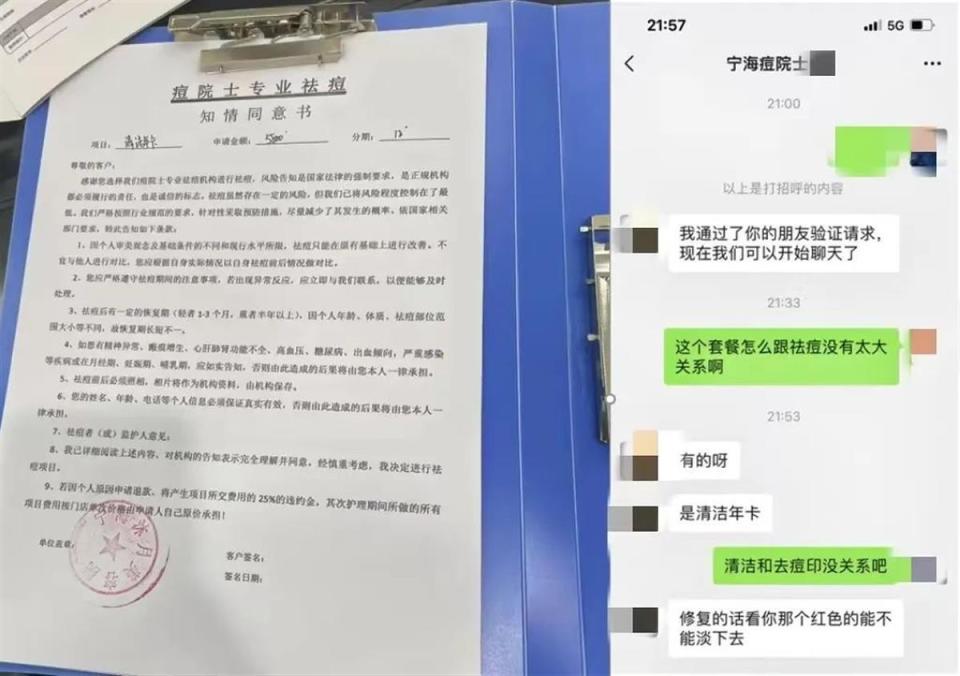 痘院士专业祛痘
知情同意书
项目：
申请金额：
分期：
尊敬的客户：
感谢您选择我们痘院士专业祛痘机构进行祛痘，风险告知是国家法律的强制要求，是正规机构
都必须履行的责任，也是诚信的标志。祛痘虽然存在一定的风险，但我们已将风险程度控制在了最
低。我们严格按照行业规范的要求，针对性采取预防措施，尽量减少了其发生的概率。依国家相关
部门要求，特此告知如下条款：
1、因个人审美观念及基础条件的不同和现行水平所限，祛痘只能在原有基础上进行改善。不
宜与他人进行对比，您应根据自身实际情况以自身祛痘前后情况做对比。
2、您应严格遵守祛痘期间的注意事项，若出现异常反应，应立即与我们联系，以便能够及时
处理。
3、祛痘后有一定的恢复期（轻者1-3个月，重者半年以上），因个人年龄、体质、祛痘部位范
围大小等不同，故恢复期长短不一。
4、如患有精神异常、瘢痕增生、心肝肺肾功能不全、高血压、糖尿病、出血倾向，严重感染
等疾病或在月经期、妊娠期、哺乳期，应如实告知，否则由此造成的后果将由您本人一律承担。
5、祛痘前后必须照相，相片将作为机构资料，由机构保存。
6、您的姓名、年龄、电话等个人信息必须保证真实有效，否则由此造成的后果将由您本人一
律承担。
7、祛痘者（或）监护人意见：
8、我已详细阅读上述内容，对机构的告知表示完全理解并同意，经慎重考虑，我决定进行祛
痘项目。
9、若因个人原因申请退款，将产生项目所交费用的25%的违约金，其次护理期间所做的所有
项目费用按门店单次价格由申请人自己原价承担！
单位盖章：
客户签名：
签名日期：
21:57
5G
宁海痘院士
21:00
以上是打招呼的内容
我通过了你的朋友验证请求，
现在我们可以开始聊天了
21:33
这个套餐怎么跟祛痘没有太大
关系啊
21:53
有的呀
是清洁年卡
清洁和去痘印没关系吧
修复的话看你那个红色的能不
能淡下去